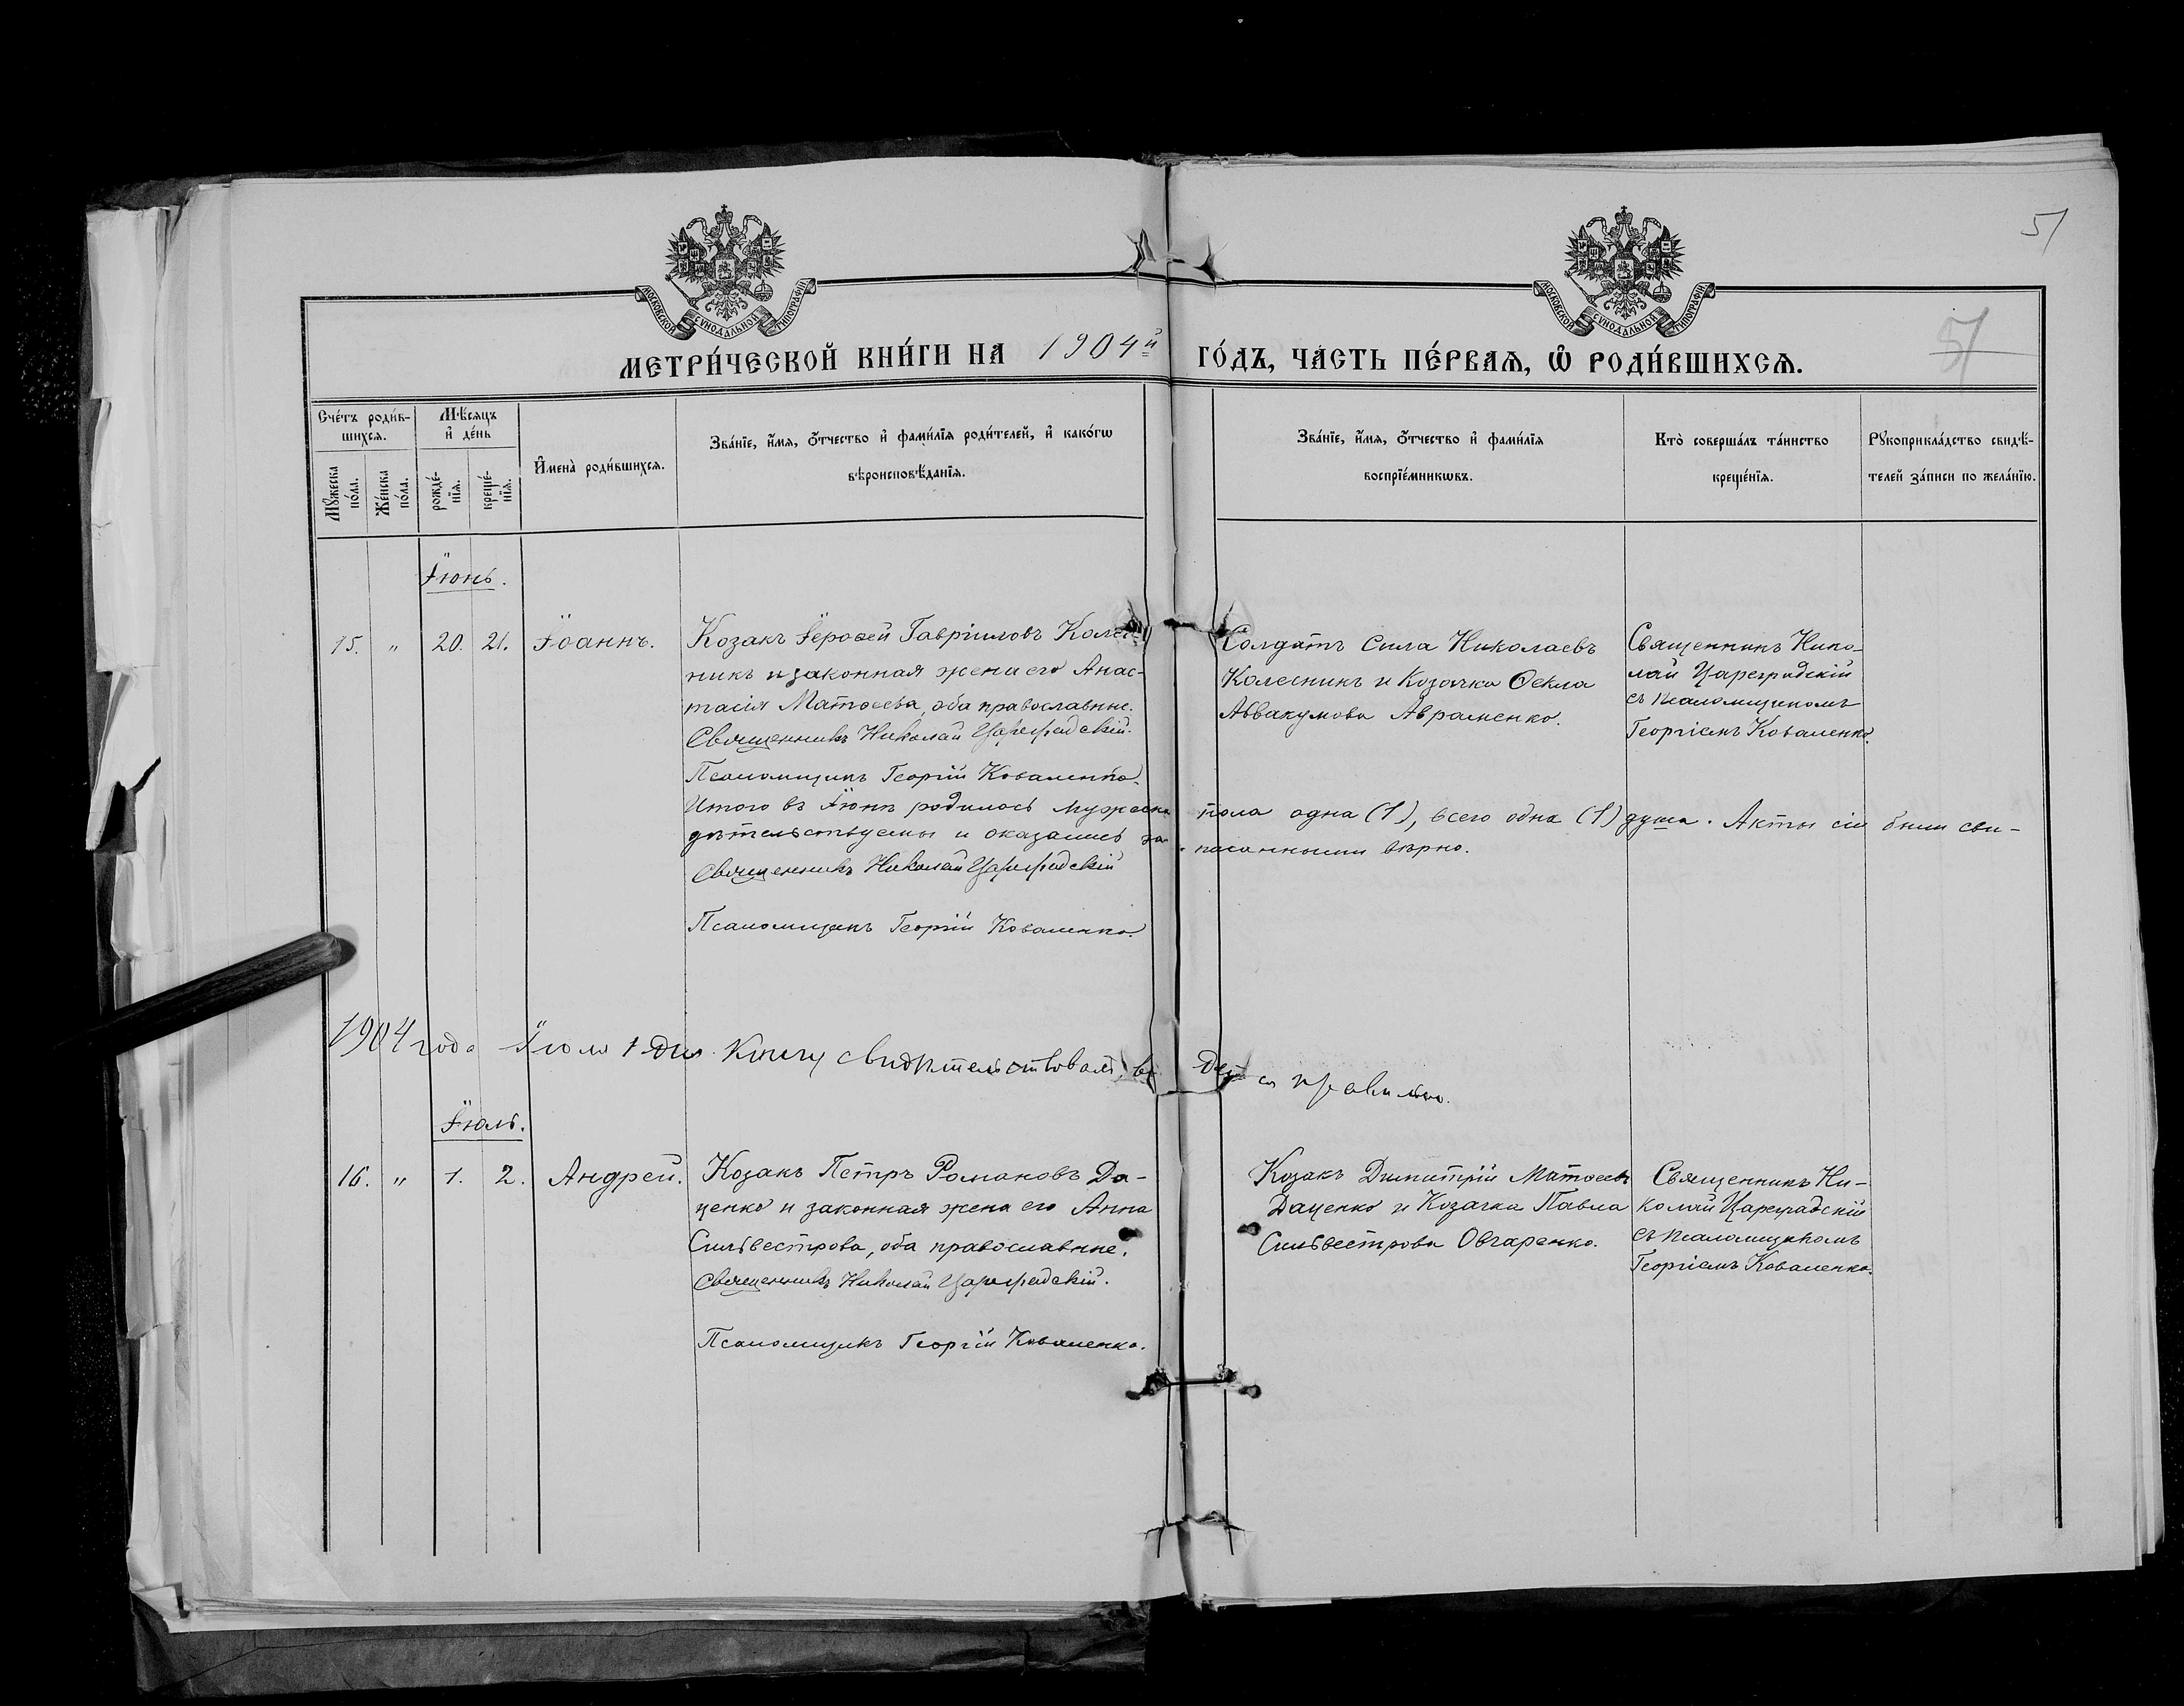 51
МОСКОВСКОЙ СУНОДАЛЬНОЙ ТИПОГРАФІИ
МОСКОВСКОЙ СУНОДАЛЬНОЙ ТИПОГРАФІИ
51
МЕТРИ́ЧЕСКОЙ КНИ́ГИ НА 1904й ГО́ДЪ, ЧА́СТЬ ПЕ́РВАЯ, Ѡ РОДИ́ВШИХСЯ.
Счётъ роди́в-
шихся.
Мꙋжеска по́ла.
Же́нска по́ла.
Мѣ́сяцъ
и де́нь
рожде́-
нїя.
креще́-
нїя.
Имена̀ роди́вшихся.
Зва́нїе, и́мя, о́тчество и фами́лїя роди́телей, и како́гѡ
вѣроисповѣ́данїя.
Зва́нїе, и́мя, о́тчество и фами́лїя
воспрїе́мникѡвъ.
Кто̀ соверша́лъ та́инство
креще́нїя.
Рꙋкоприкла́дство свидѣ́-
телей за́писи по жела́нїю.
Іюнь.
15. " 20. 21. Іоаннъ.
Козакъ Іероѳей Гавріиловъ Колес-
никъ и законная жена его Анас-
тасія Матѳеева, оба православные.
Священникъ Николай Цареградскій.
Псаломщикъ Георгій Коваленко.
Солдатъ Сила Николаевъ
Колесникъ и Козачка Ѳекла
Аввакумова Авраменко.
Священникъ Нико-
лай Цареградскій
съ псаломщикомъ
Георгіемъ Коваленко.
Итого въ Іюнѣ родилось мужеска пола одна (1), всего одна (1) душа. Акты сіи были сви-
дѣтельствуемы и оказались за-писанными вѣрно.
Священникъ Николай Цареградскій
Псаломщикъ Георгій Коваленко.
1904 года Іюля 1 дня Книгу свидѣтельствовалъ, ведется правильно.
Іюль.
16. " 1. 2. Андрей.
Козакъ Петръ Романовъ Да-
ценко и законная жена его Анна
Сильвестрова, оба православные.
Священникъ Николай Цареградскій.
Псаломщикъ Георгій Коваленко.
Козакъ Димитрій Матѳеевъ
Даценко и Козачка Павла
Сильвестрова Овчаренко.
Священникъ Ни-
колай Цареградскій
съ псаломщикомъ
Георгіемъ Коваленко.